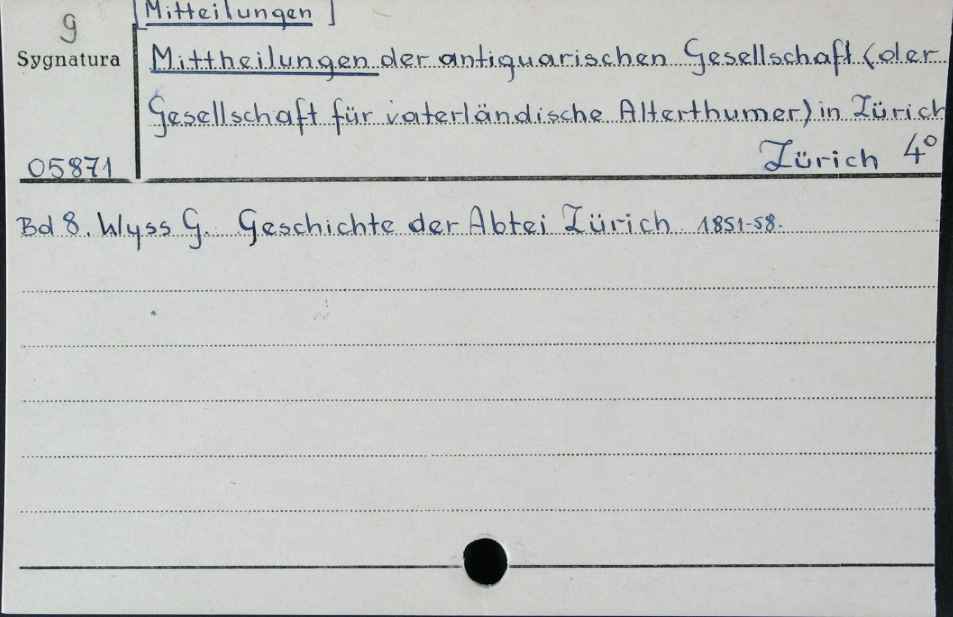 g
Sygnatura
05871
[Mitteilungen]
Mittheilungen der antiquarischen Gesellschaft (der
Gesellschaft für vaterländische Alterthumer) in Zürich
Zürich 4°
Bd 8. Wyss G. Geschichte der Abtei Zürich 1851-58.